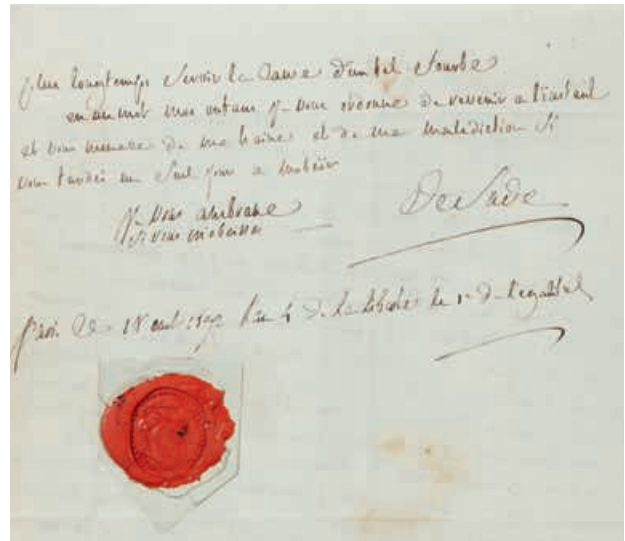 plus longtemps servir la cause d'un tel fourbe
en un mot mes enfans je vous ordonne de revenir a l'instant
et vous menace de ma haine et de ma malediction si
vous tardés un seul jour a m'obéir
je vous ambrasse
si vous m'obeissés
DeSade
Paris ce 18 aout 1792 l'an 4 de la liberté le 1er de l'egalité